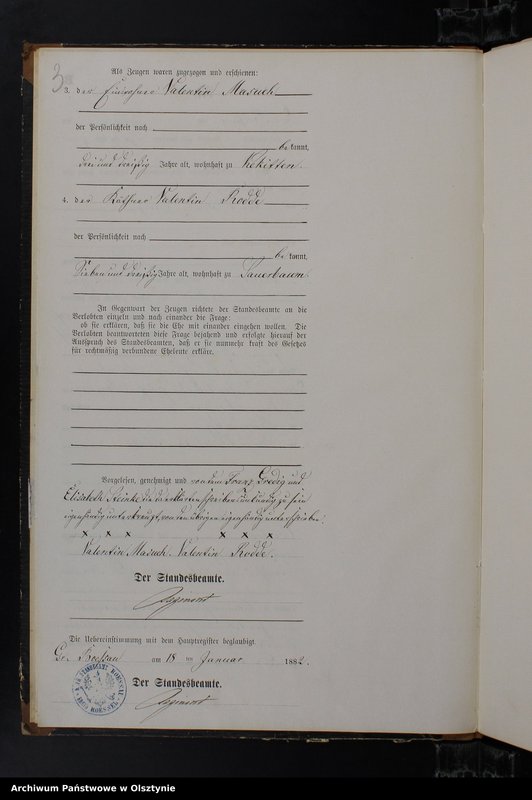 3
Als Zeugen waren zugezogen und erschienen:
3. der Einwohner Valentin Masuch
der Persönlichkeit nach
be kannt,
drei und dreißig Jahre alt, wohnhaft zu Kekitten
4. der Käthner Valentin Rodde
der Persönlichkeit nach
be kannt,
Sieben und dreißig Jahre alt, wohnhaft zu Sauerbaum
In Gegenwart der Zeugen richtete der Standesbeamte an die
Verlobten einzeln und nach einander die Frage:
ob sie erklären, daß sie die Ehe mit einander eingehen wollen. Die
Verlobten beantworteten diese Frage bejahend und erfolgte hierauf der
Ausspruch des Standesbeamten, daß er sie nunmehr kraft des Gesetzes
für rechtmäßig verbundene Eheleute erkläre.
Vorgelesen, genehmigt und von dem Franz und
Elisabeth die da erklärten schreibensunkundig zu sein
eigenhändig unterkreuzt, von den übrigen eigenhändig unterschrieben.
x x x x x x
Valentin Masuch. Valentin Rodde.
Der Standesbeamte.
Die Uebereinstimmung mit dem Hauptregister beglaubigt.
Gr. Boessau am 18 ten Januar 1882.
Der Standesbeamte.
Archiwum Państwowe w Olsztynie